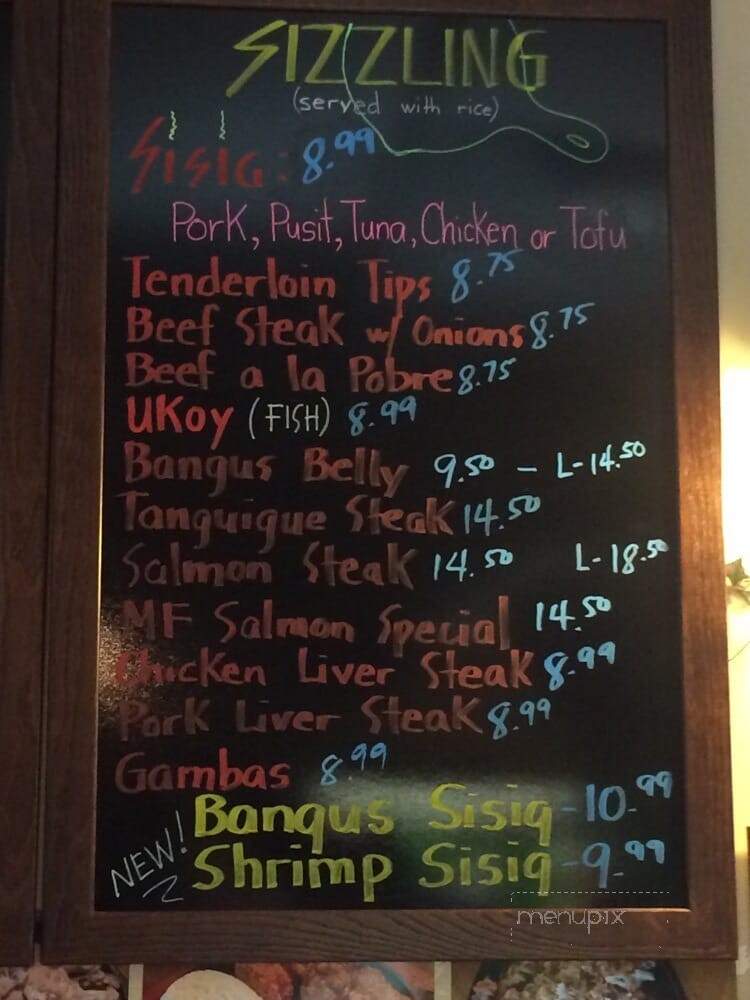 SIZZLING
(served with rice)
SISIG: 8.99
Pork, Pusit, Tuna, Chicken or Tofu
Tenderloin Tips 8.75
Beef Steak w/ Onions 8.75
Beef a la Pobre 8.75
UKoy (FISH) 8.99
Bangus Belly 9.50 - L-14.50
Tanguigue Steak 14.50
Salmon Steak 14.50 L-18.50
MF Salmon Special 14.50
Chicken Liver Steak 8.99
Pork Liver Steak 8.99
Gambas 8.99
NEW! Bangus Sisig - 10.99
Shrimp Sisig - 9.99
menupix